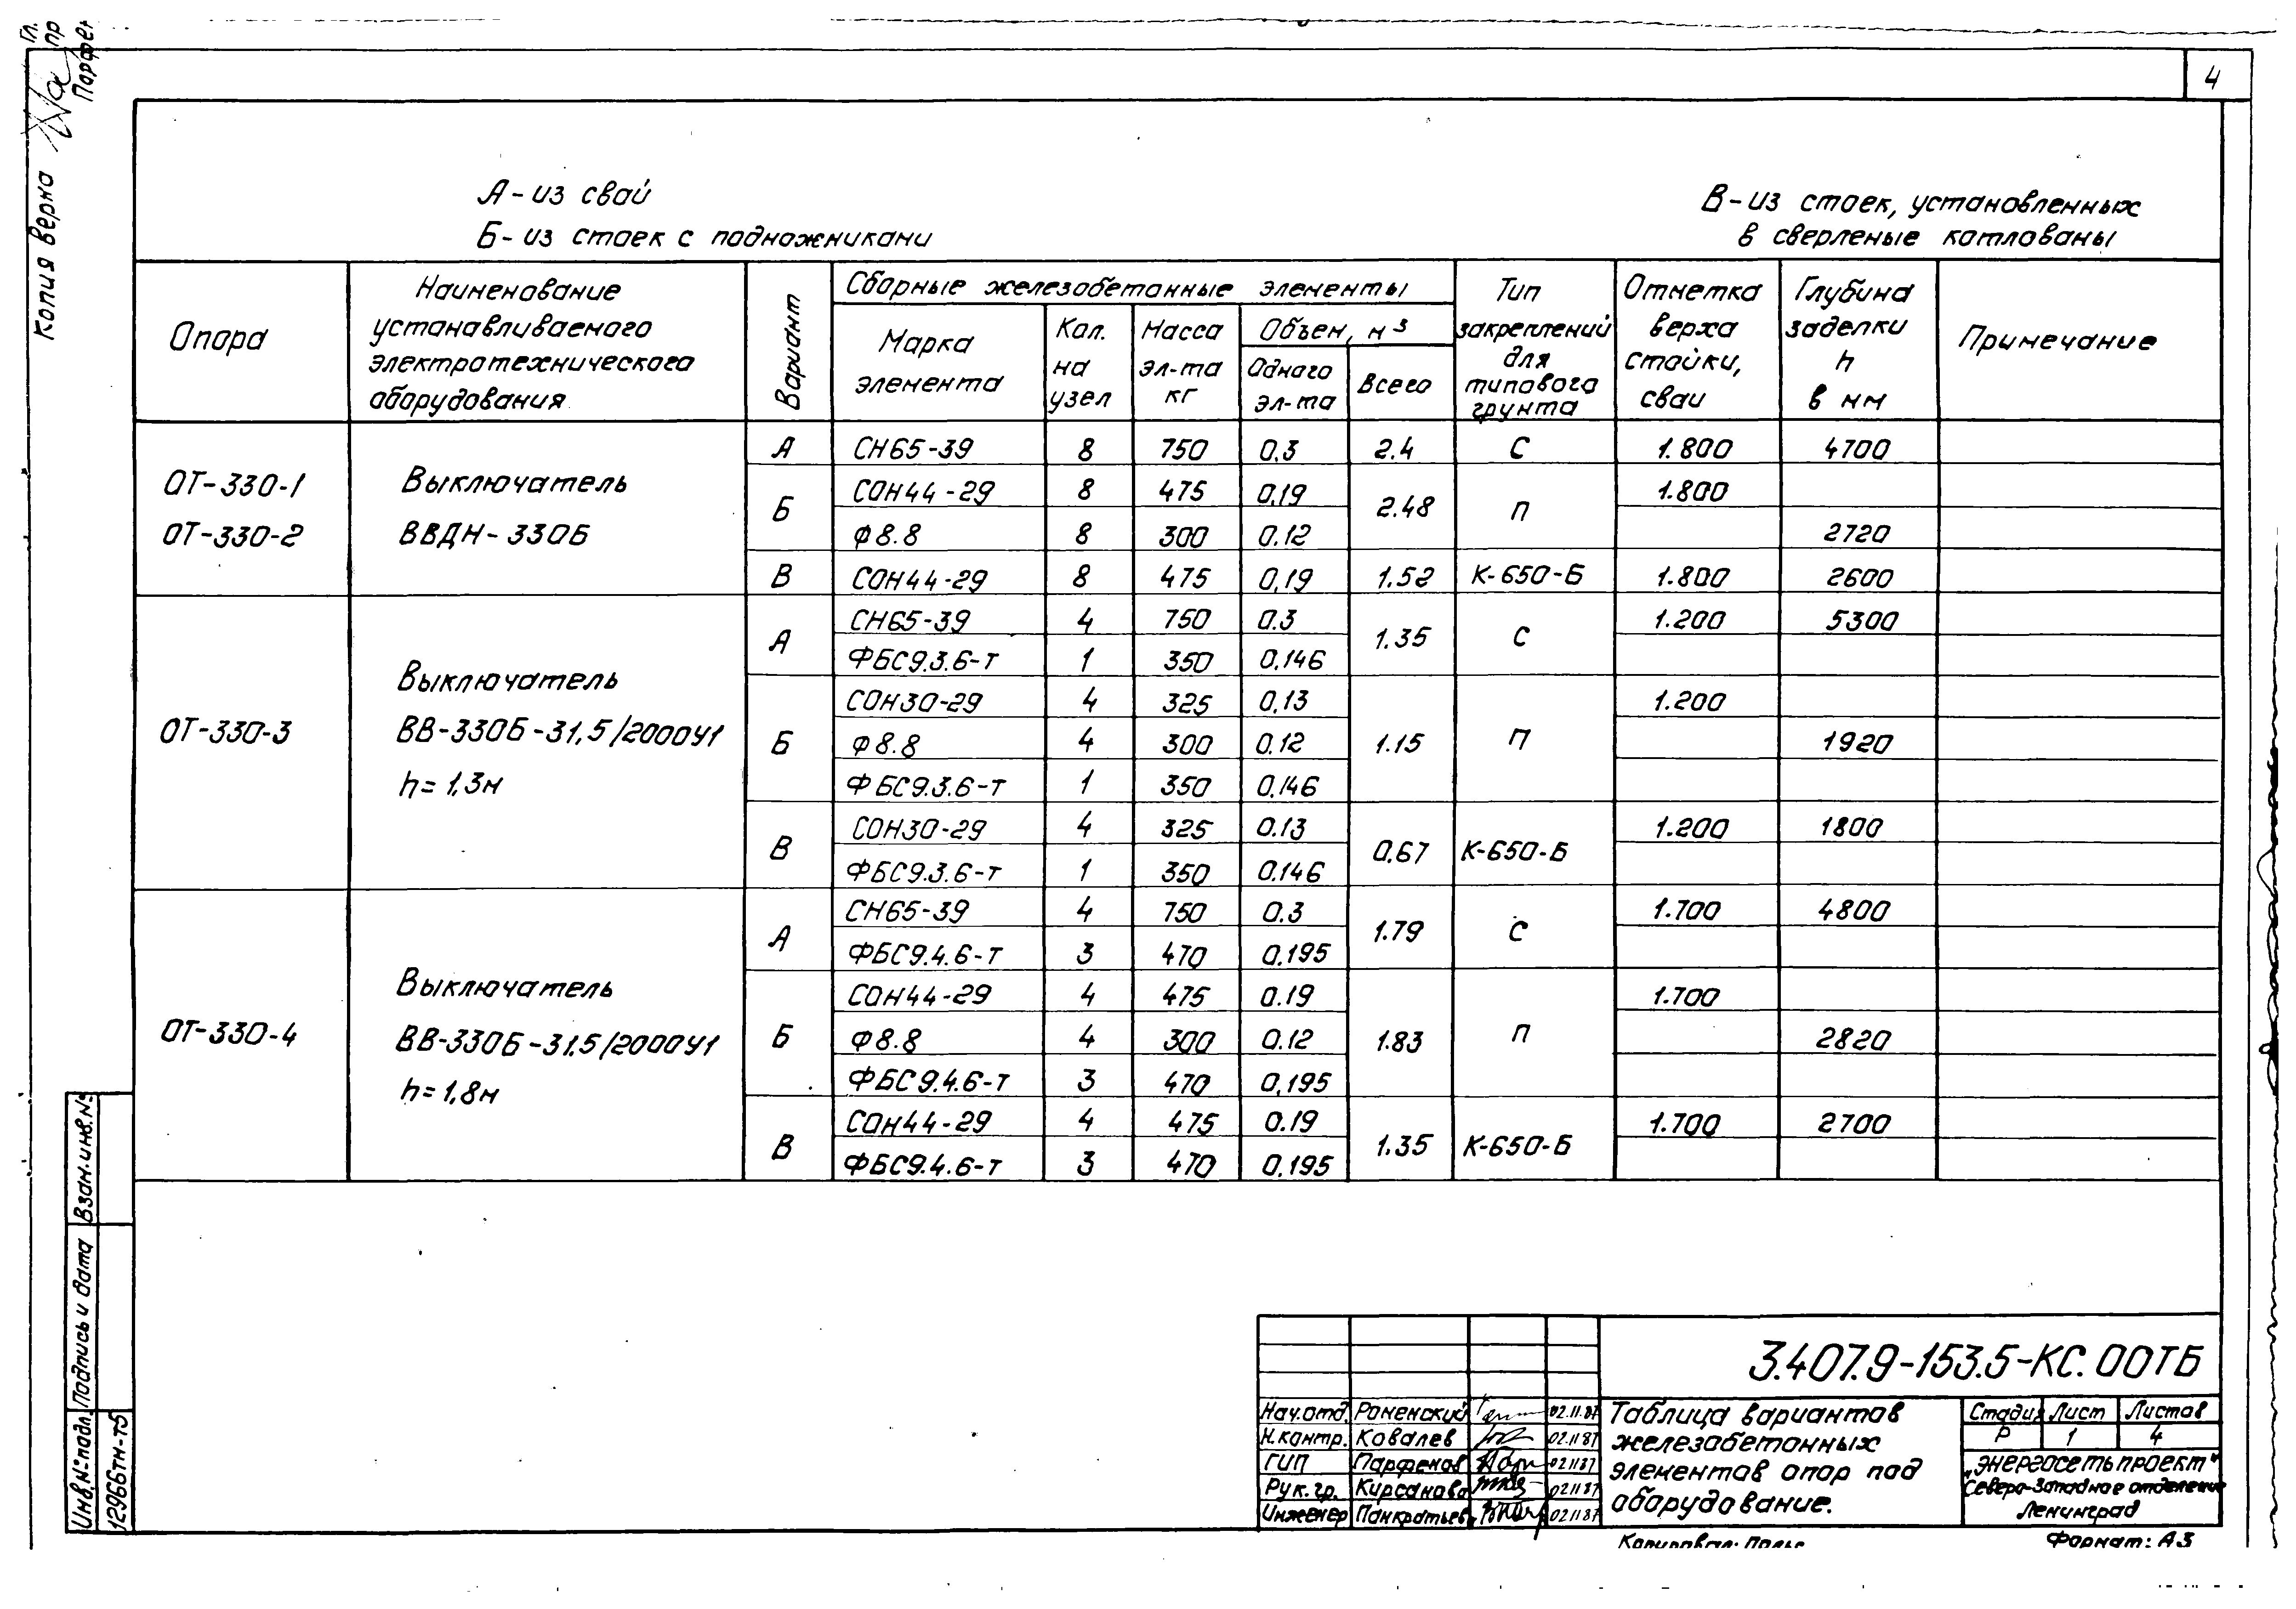 4
Копия верна
А - из свай
Б - из стоек с подножниками
В - из стоек, установленных
в сверленые котлованы
Опора
Наименование
устанавливаемого
электротехнического
оборудования
Вариант
Сборные железобетонные элементы
Марка
элемента
Кол.
на
узел
Масса
эл-та
кг
Объем, м³
Одного
эл-та
Всего
Тип
закреплений
для
типового
грунта
Отметка
верха
стойки,
сваи
Глубина
заделки
h
в мм
Примечание
ОТ-330-1
ОТ-330-2
Выключатель
ВВДН-330Б
А СН65-39 8 750 0.3 2.4 С 1.800 4700
Б СОН44-29 8 475 0,19 2.48 П 1.800
Ф8.8 8 300 0.12 2720
В СОН44-29 8 475 0,19 1.52 К-650-Б 1.800 2600
ОТ-330-3
Выключатель
ВВ-330Б-31,5/2000У1
h=1,3м
А СН65-39 4 750 0.3 1.35 С 1.200 5300
ФБС9.3.6-Т 1 350 0,146
Б СОН30-29 4 325 0,13 1.15 П 1.200
Ф8.8 4 300 0.12 1920
ФБС9.3.6-Т 1 350 0,146
В СОН30-29 4 325 0.13 0,67 К-650-Б 1.200 1800
ФБС9.3.6-Т 1 350 0.146
ОТ-330-4
Выключатель
ВВ-330Б-31.5/2000У1
h=1,8м
А СН65-39 4 750 0.3 1.79 С 1.700 4800
ФБС9.4.6-Т 3 470 0.195
Б СОН44-29 4 475 0.19 1.83 П 1.700
Ф8.8 4 300 0.12 2820
ФБС9.4.6-Т 3 470 0,195
В СОН44-29 4 475 0.19 1.35 К-650-Б 1.700 2700
ФБС9.4.6-Т 3 470 0.195
Взам.инв.№
Подпись и дата
Инв.№подл.
12966тм-т5
3.407.9-153.5-КС.00ТБ
Нач.отд. Роменский 02.11.87
Н.контр. Ковалев 02.11.87
ГИП Парфенов 02.11.87
Рук.гр. Кирсанова 02.11.87
Инженер Панкратьев 02.11.87
Таблица вариантов
железобетонных
элементов опор под
оборудование.
Стадия Лист Листов
Р 1 4
„Энергосетьпроект"
Северо-Западное отделение
Ленинград
Копировал:
Формат: А3